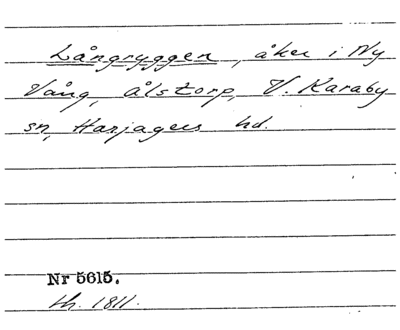 Långryggen, åker i Ny
Vång, Ålstorp, V. Karaby
sn, Harjagers hd.
Nr 5615.
th. 1811.